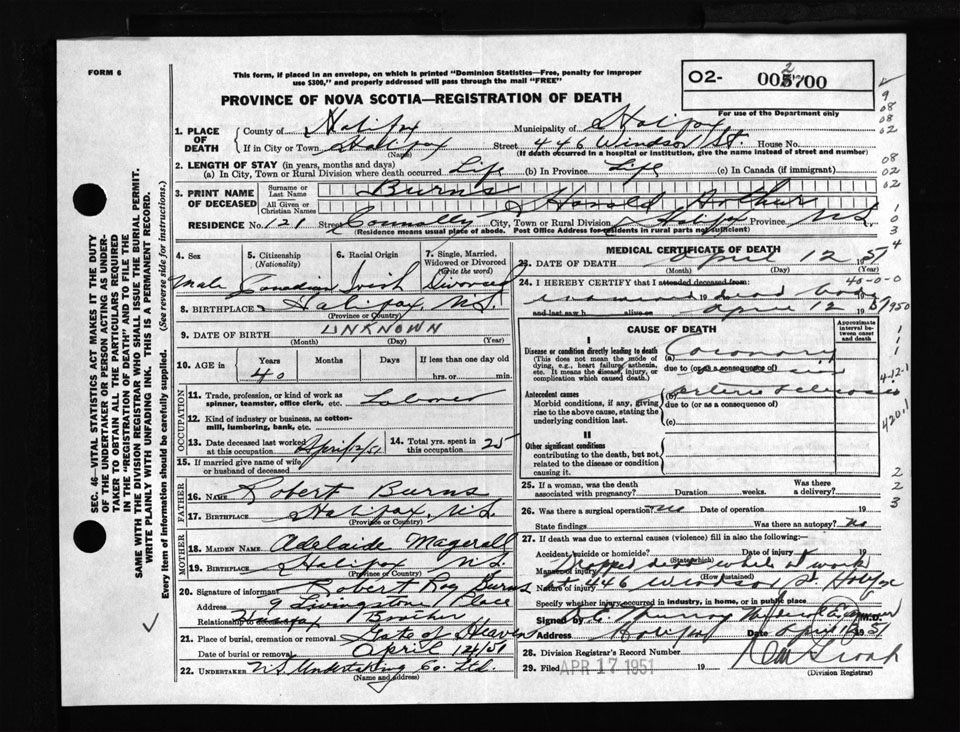 FORM 6
This form, if placed in an envelope, on which is printed "Dominion Statistics—Free, penalty for improper
use $300," and properly addressed will pass through the mail "FREE"
O2- 005700
2
For use of the Department only
PROVINCE OF NOVA SCOTIA—REGISTRATION OF DEATH
1. PLACE OF DEATH
County of Halifax Municipality of Halifax
If in City or Town Halifax Street 446 Windsor St House No.
(Name) (If death occurred in a hospital or institution, give the name instead of street and number)
2. LENGTH OF STAY (in years, months and days)
(a) In City, Town or Rural Division where death occurred Life (b) In Province Life (c) In Canada (if immigrant)
3. PRINT NAME OF DECEASED
Surname or Last Name Burns
All Given or Christian Names Harold Arthur
RESIDENCE No. 121 Street Connolly City, Town or Rural Division Halifax Province N.S.
(Residence means usual place of abode. Post Office Address for residents in rural parts not sufficient)
4. Sex
Male
5. Citizenship
(Nationality)
Canadian
6. Racial Origin
Irish
7. Single, Married, Widowed or Divorced
(write the word)
Divorced
8. BIRTHPLACE Halifax, N.S.
(Province or Country)
9. DATE OF BIRTH UNKNOWN
(Month) (Day) (Year)
10. AGE in
Years Months Days If less than one day old
40 hrs. or min.
OCCUPATION
11. Trade, profession, or kind of work as
spinner, teamster, office clerk, etc. Laborer
12. Kind of industry or business, as cotton-
mill, lumbering, bank, etc.
13. Date deceased last worked
at this occupation April 12/51
14. Total yrs. spent in
this occupation 25
15. If married give name of wife
or husband of deceased
FATHER
16. NAME Robert Burns
17. BIRTHPLACE Halifax, N.S.
(Province or Country)
MOTHER
18. MAIDEN NAME Adelaide
19. BIRTHPLACE Halifax N.S.
(Province or Country)
20. Signature of informant Robert Roy Burns
Address 9 Livingstone Place
Halifax Brother
21. Place of burial, cremation or removal Gate of Heaven
Date of burial or removal April 14/51
22. UNDERTAKER N.S. Undertaking Co. Ltd.
(Name and address)
MEDICAL CERTIFICATE OF DEATH
23. DATE OF DEATH April 12 1951
(Month) (Day) (Year)
24. I HEREBY CERTIFY that I attended deceased from
examined 19 dead body
and last saw h alive on April 12 1951
40-0-0
1950
CAUSE OF DEATH
Approximate interval between onset and death
I
Disease or condition directly leading to death
(This does not mean the mode of dying, e.g., heart failure, asthenia, etc. It means the disease, injury, or complication which caused death.)
(a) Coronary
due to (or as a consequence of)
Antecedent causes
Morbid conditions, if any, giving rise to the above cause, stating the underlying condition last.
(b)
due to (or as a consequence of)
(c)
II
Other significant conditions
contributing to the death, but not related to the disease or condition causing it.
420.1
25. If a woman, was the death
associated with pregnancy? Duration weeks. Was there a delivery?
26. Was there a surgical operation? no Date of operation 19
State findings Was there an autopsy? no
27. If death was due to external causes (violence) fill in also the following:—
Accident, suicide or homicide? Date of injury 19
(State which)
Manner of injury Dropped dead while at work
(How sustained)
Nature of injury at 446 Windsor St. Halifax
Specify whether injury occurred in industry, in home, or in public place
Signed by Medical Examiner M.D.
Address Halifax Date April 1951
28. Division Registrar's Record Number
29. Filed APR 17 1951 19
(Division Registrar)
SEC. 46—VITAL STATISTICS ACT MAKES IT THE DUTY
OF THE UNDERTAKER OR PERSON ACTING AS UNDER-
TAKER TO OBTAIN ALL THE PARTICULARS REQUIRED
IN THE "REGISTRATION OF DEATH" AND TO FILE THE
SAME WITH THE DIVISION REGISTRAR WHO SHALL ISSUE THE BURIAL PERMIT.
WRITE PLAINLY WITH UNFADING INK. THIS IS A PERMANENT RECORD.
Every item of information should be carefully supplied. (See reverse side for instructions.)